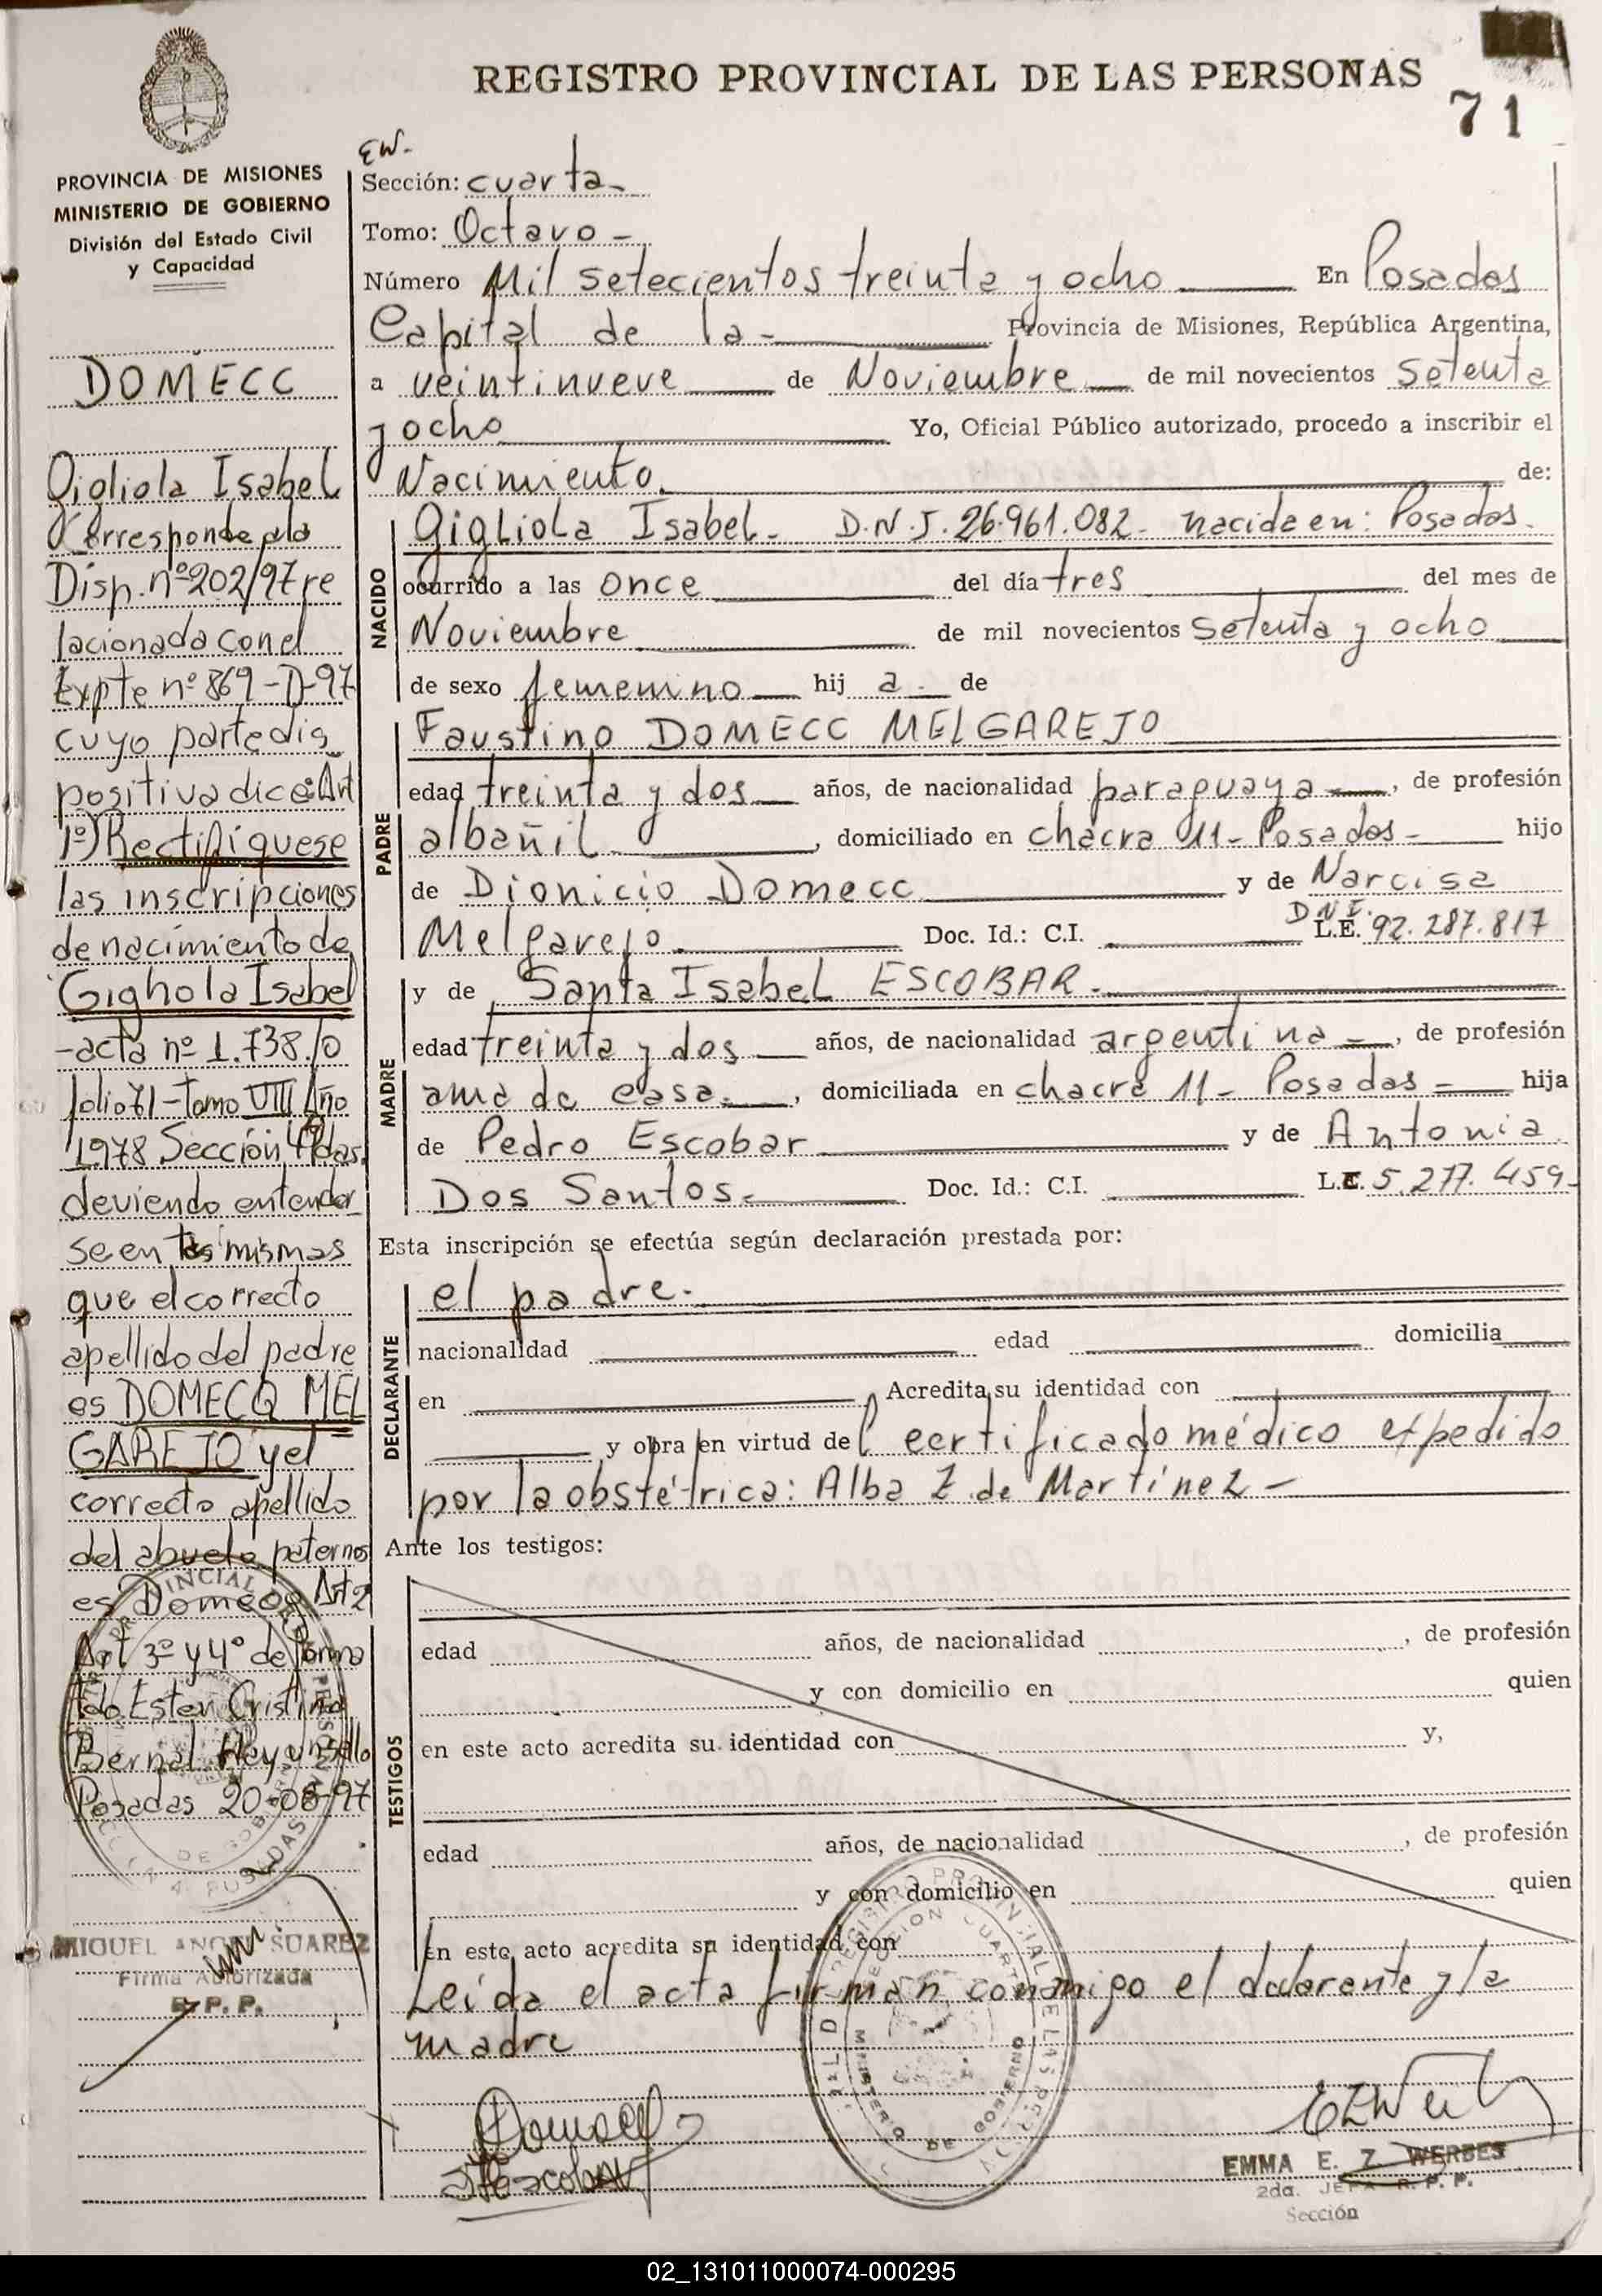 REGISTRO PROVINCIAL DE LAS PERSONAS
71
PROVINCIA DE MISIONES
MINISTERIO DE GOBIERNO
División del Estado Civil
y Capacidad
DOMECC
Gigliola Isabel
Corresponde a la
Disp. nº 202/97 re
lacionada con el
Expte nº 869-D-97
cuyo parte dis
positiva dice: Art
1º) Rectifiquese
las inscripciones
de nacimiento de
Gighola Isabel
-acta nº 1.738.
folio 71-Tomo VIII Año
1978 Sección 4ª Pdas.
deviendo entender
se en las mismas
que el correcto
apellido del padre
es DOMECQ MEL
GAREJO y el
correcto apellido
del abuelo paterno
es Domecq Art 2
Art 3º y 4º de forma
Fdo. Ester Cristina
Bernal
Posadas 20-08-97
MIGUEL ANGEL SUAREZ
Firma Autorizada
R. P. P.
EW.
Sección: cuarta-
Tomo: Octavo-
Número Mil setecientos treinta y ocho En Posadas
Capital de la- Provincia de Misiones, República Argentina,
a veintinueve de Noviembre de mil novecientos setenta
y ocho Yo, Oficial Público autorizado, procedo a inscribir el
Nacimiento. de:
NACIDO
Gigliola Isabel- D.N.I. 26.961.082- nacida en: Posadas.
ocurrido a las once del día tres del mes de
Noviembre de mil novecientos setenta y ocho
de sexo femenino hij a de
PADRE
Faustino DOMECC MELGAREJO
edad treinta y dos años, de nacionalidad paraguaya, de profesión
albañil, domiciliado en chacra 11- Posadas- hijo
de Dionicio Domecc y de Narcisa
Melgarejo. Doc. Id.: C.I. D.N.I. L.E. 92.287.817
MADRE
y de Santa Isabel ESCOBAR.
edad treinta y dos años, de nacionalidad argentina, de profesión
ama de casa, domiciliada en chacra 11- Posadas- hija
de Pedro Escobar y de Antonia
Dos Santos. Doc. Id.: C.I. L.C. 5.277.459-
Esta inscripción se efectúa según declaración prestada por:
DECLARANTE
el padre.
nacionalidad edad domicilia
en Acredita su identidad con
y obra en virtud del certificado médico expedido
por la obstétrica: Alba Z. de Martínez-
Ante los testigos:
TESTIGOS
edad años, de nacionalidad , de profesión
y con domicilio en quien
en este acto acredita su identidad con y,
edad años, de nacionalidad , de profesión
y con domicilio en quien
En este acto acredita su identidad con
Leída el acta firman conmigo el declarante y la
madre
EMMA E. Z. WERBES
2da. JEFA R. P. P.
Sección
02_131011000074-000295